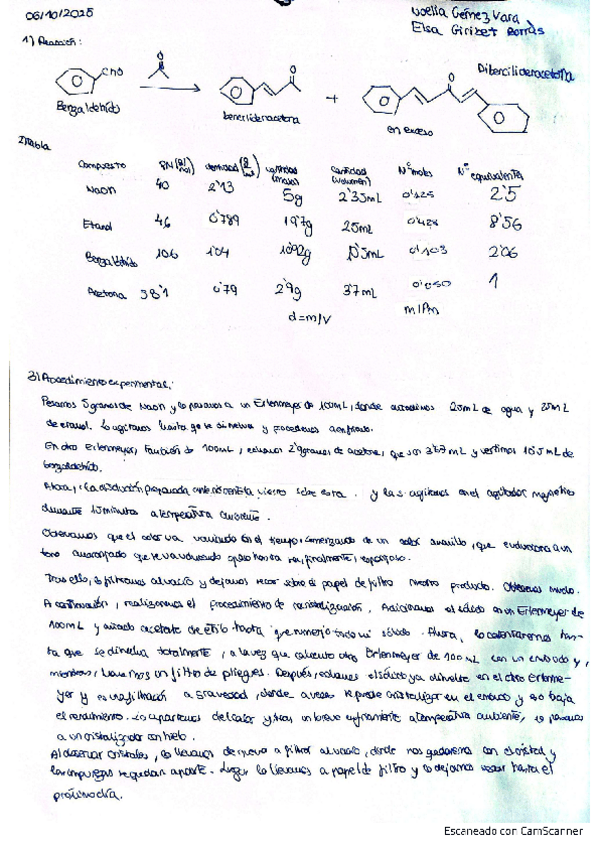 06/10/2025
Noelia Gómez Vara
Elsa Girixet Porràs
1) Reacción:
CHO
O
O
Dibencilidenacetona
Benzaldehído
bencilidenacetona
+
en exceso
2) Tabla
Compuesto PM (g/mol) densidad (g/mL) cantidad (masa) cantidad (volumen) Nº moles Nº equivalentes
NaOH 40 2'13 5g 2'35mL 0'125 2'5
Etanol 46 0'789 19'7g 25mL 0'428 8'56
Benzaldehído 106 1'04 10'92g 10'5mL 0'103 2'06
Acetona 58'1 0'79 2'9g 3'7mL 0'050 1
d=m/v m/Pm
3) Procedimiento experimental:
Pesamos 5 gramos de NaOH y lo pasamos a un Erlenmeyer de 100mL, donde 25mL de agua y 25mL
de etanol. Lo agitamos hasta que se disuelva y procedemos a enfriarlo.
En otro Erlenmeyer, también de 100mL, echamos 2'9 gramos de acetona, que son 3'67 mL y vertimos 10'5mL de
benzaldehído.
Ahora, la disolución preparada anteriormente la vierto sobre esta y las agitamos en el agitador magnético
durante 15 minutos a temperatura ambiente.
Observamos que el color va variando en el tiempo, comenzando de un color amarillo, que evoluciona a un
tono anaranjado que se va volviendo opaco hasta ser, finalmente, espeso.
Tras ello, lo filtramos al vacío y dejamos secar sobre el papel de filtro nuestro producto.
A continuación, realizamos el procedimiento de recristalización. Adicionamos el sólido en un Erlenmeyer de
100mL y añado acetato de etilo hasta que sumerja todo mi sólido. Ahora, lo calentaremos has-
ta que se disuelva totalmente, a la vez que caliento otro Erlenmeyer de 100 mL con un embudo y,
mientras, hacemos un filtro de pliegues. Después, echamos el sólido ya disuelto en el otro Erlenme-
yer y es una filtración a gravedad, donde a veces se puede cristalizar en el embudo y eso baja
el rendimiento. Lo apartamos del calor y tras un breve enfriamiento a temperatura ambiente, lo pasamos
a un cristalizador con hielo.
Al observar cristales, lo llevamos de nuevo a filtrar al vacío, donde nos quedaremos con el cristal y
las impurezas se quedan aparte. Luego lo llevamos a papel de filtro y lo dejamos secar hasta el
próximo día.
Escaneado con CamScanner